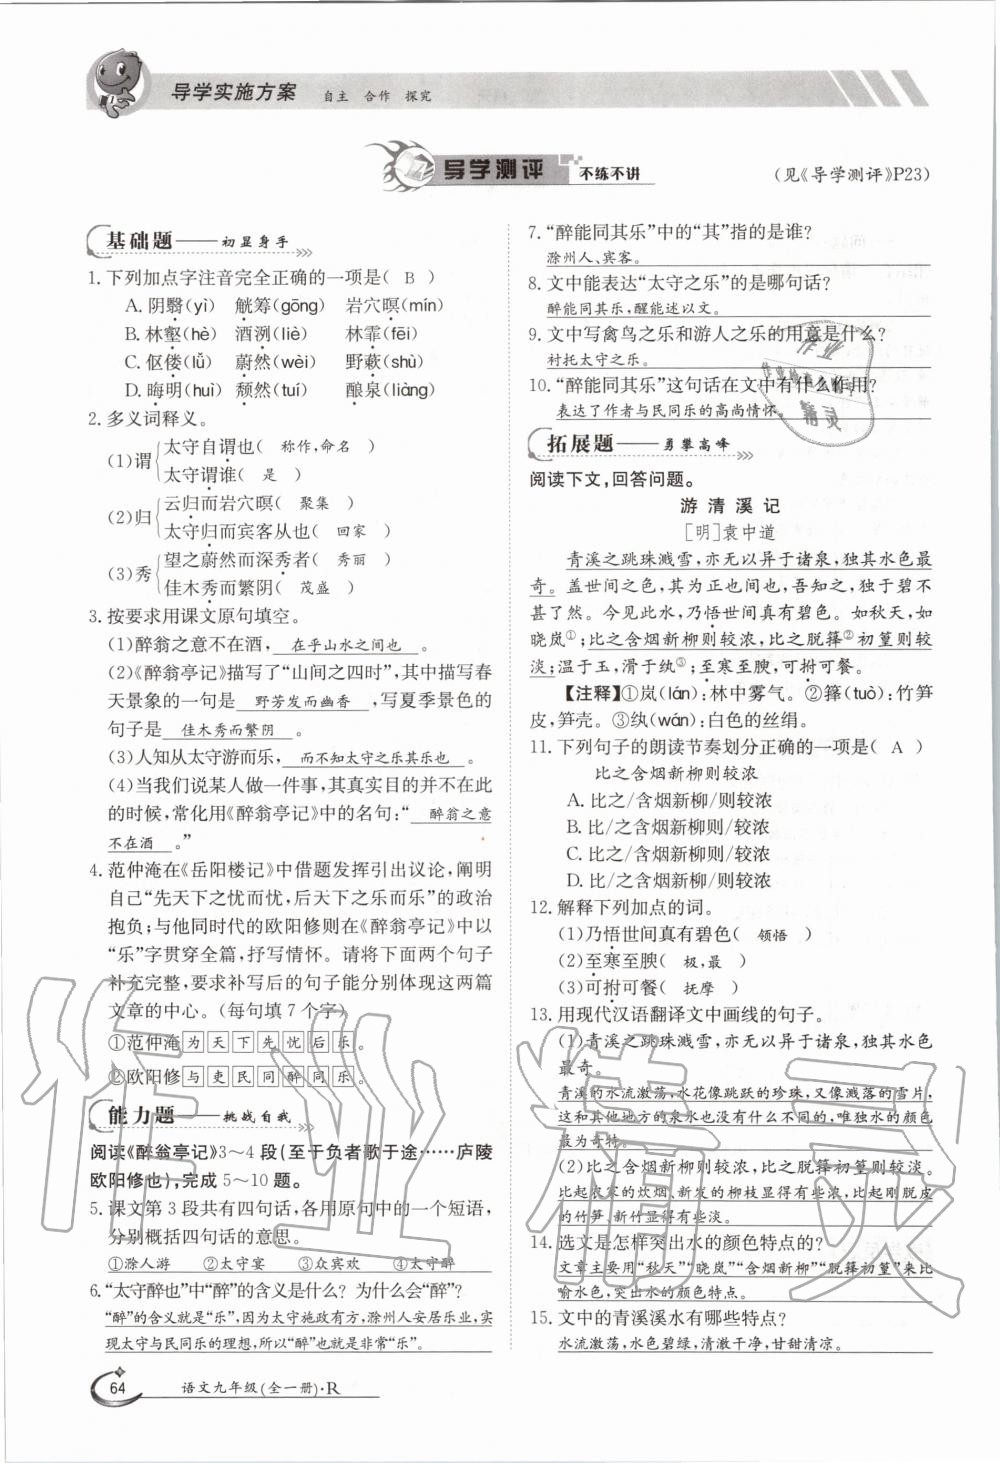 导学实施方案 自主 合作 探究
导学测评 不练不讲
(见《导学测评》P23)
基础题——初显身手
1. 下列加点字注音完全正确的一项是( B )
A. 阴翳(yì) 觥筹(gōng) 岩穴暝(mín)
B. 林壑(hè) 酒洌(liè) 林霏(fēi)
C. 伛偻(lǚ) 蔚然(wèi) 野蔌(shù)
D. 晦明(huì) 颓然(tuí) 酿泉(liàng)
2. 多义词释义。
(1)谓
太守自谓也( 称作,命名 )
太守谓谁( 是 )
(2)归
云归而岩穴暝( 聚集 )
太守归而宾客从也( 回家 )
(3)秀
望之蔚然而深秀者( 秀丽 )
佳木秀而繁阴( 茂盛 )
3. 按要求用课文原句填空。
(1)醉翁之意不在酒, 在乎山水之间也 。
(2)《醉翁亭记》描写了“山间之四时”,其中描写春
天景象的一句是 野芳发而幽香 ,写夏季景色的
句子是 佳木秀而繁阴 。
(3)人知从太守游而乐, 而不知太守之乐其乐也 。
(4)当我们说某人做一件事,其真实目的并不在此
的时候,常化用《醉翁亭记》中的名句:“ 醉翁之意
不在酒 。”
4. 范仲淹在《岳阳楼记》中借题发挥引出议论,阐明
自己“先天下之忧而忧,后天下之乐而乐”的政治
抱负;与他同时代的欧阳修则在《醉翁亭记》中以
“乐”字贯穿全篇,抒写情怀。请将下面两个句子
补充完整,要求补写后的句子能分别体现这两篇
文章的中心。(每句填7个字)
①范仲淹为天下先忧后乐。
②欧阳修与吏民同醉同乐。
能力题——挑战自我
阅读《醉翁亭记》3~4段(至于负者歌于途……庐陵
欧阳修也),完成5~10题。
5. 课文第3段共有四句话,各用原句中的一个短语,
分别概括四句话的意思。
①滁人游 ②太守宴 ③众宾欢 ④太守醉
6. “太守醉也”中“醉”的含义是什么?为什么会“醉”?
“醉”的含义就是“乐”,因为太守施政有方,滁州人安居乐业,实
现太守与民同乐的理想,所以“醉”也就是“乐”。
64 语文九年级(全一册)·R
7. “醉能同其乐”中的“其”指的是谁?
滁州人、宾客。
8. 文中能表达“太守之乐”的是哪句话?
醉能同其乐,醒能述以文。
9. 文中写禽鸟之乐和游人之乐的用意是什么?
衬托太守之乐。
10. “醉能同其乐”这句话在文中有什么作用?
表达了作者与民同乐的高尚情怀。
拓展题——勇攀高峰
阅读下文,回答问题。
游清溪记
[明]袁中道
青溪之跳珠溅雪,亦无以异于诸泉,独其水色最
奇。盖世间之色,其为正也间也,吾知之,独于碧不
甚了然。今见此水,乃悟世间真有碧色。如秋天,如
晓岚①;比之含烟新柳则较浓,比之脱箨②初篁则较
淡;温于玉,滑于纨③;至寒至腴,可拊可餐。
【注释】①岚(lán):林中雾气。②箨(tuò):竹笋
皮,笋壳。③纨(wán):白色的丝绢。
11. 下列句子的朗读节奏划分正确的一项是( A )
比之含烟新柳则较浓
A. 比之/含烟新柳/则较浓
B. 比/之含烟新柳则/较浓
C. 比之/含烟新柳则/较浓
D. 比/之含烟新柳/则较浓
12. 解释下列加点的词。
(1)乃悟世间真有碧色( 领悟 )
(2)至寒至腴( 极,最 )
(3)可拊可餐( 抚摩 )
13. 用现代汉语翻译文中画线的句子。
(1)青溪之跳珠溅雪,亦无以异于诸泉,独其水色
最奇。
青溪的水流激荡,水花像跳跃的珍珠,又像溅落的雪片,
这和其他地方的泉水也没有什么不同的,唯独水的颜色
最为奇特。
(2)比之含烟新柳则较浓,比之脱箨初篁则较淡。
比起农家的炊烟、新发的柳枝显得有些浓,比起刚脱皮
的竹笋、新竹显得有些淡。
14. 选文是怎样突出水的颜色特点的?
文章主要用“秋天”“晓岚”“含烟新柳”“脱箨初篁”来比
喻水色,突出水的颜色特点。
15. 文中的青溪溪水有哪些特点?
水流激荡,水色碧绿,清澈干净,甘甜清凉。
作业精灵